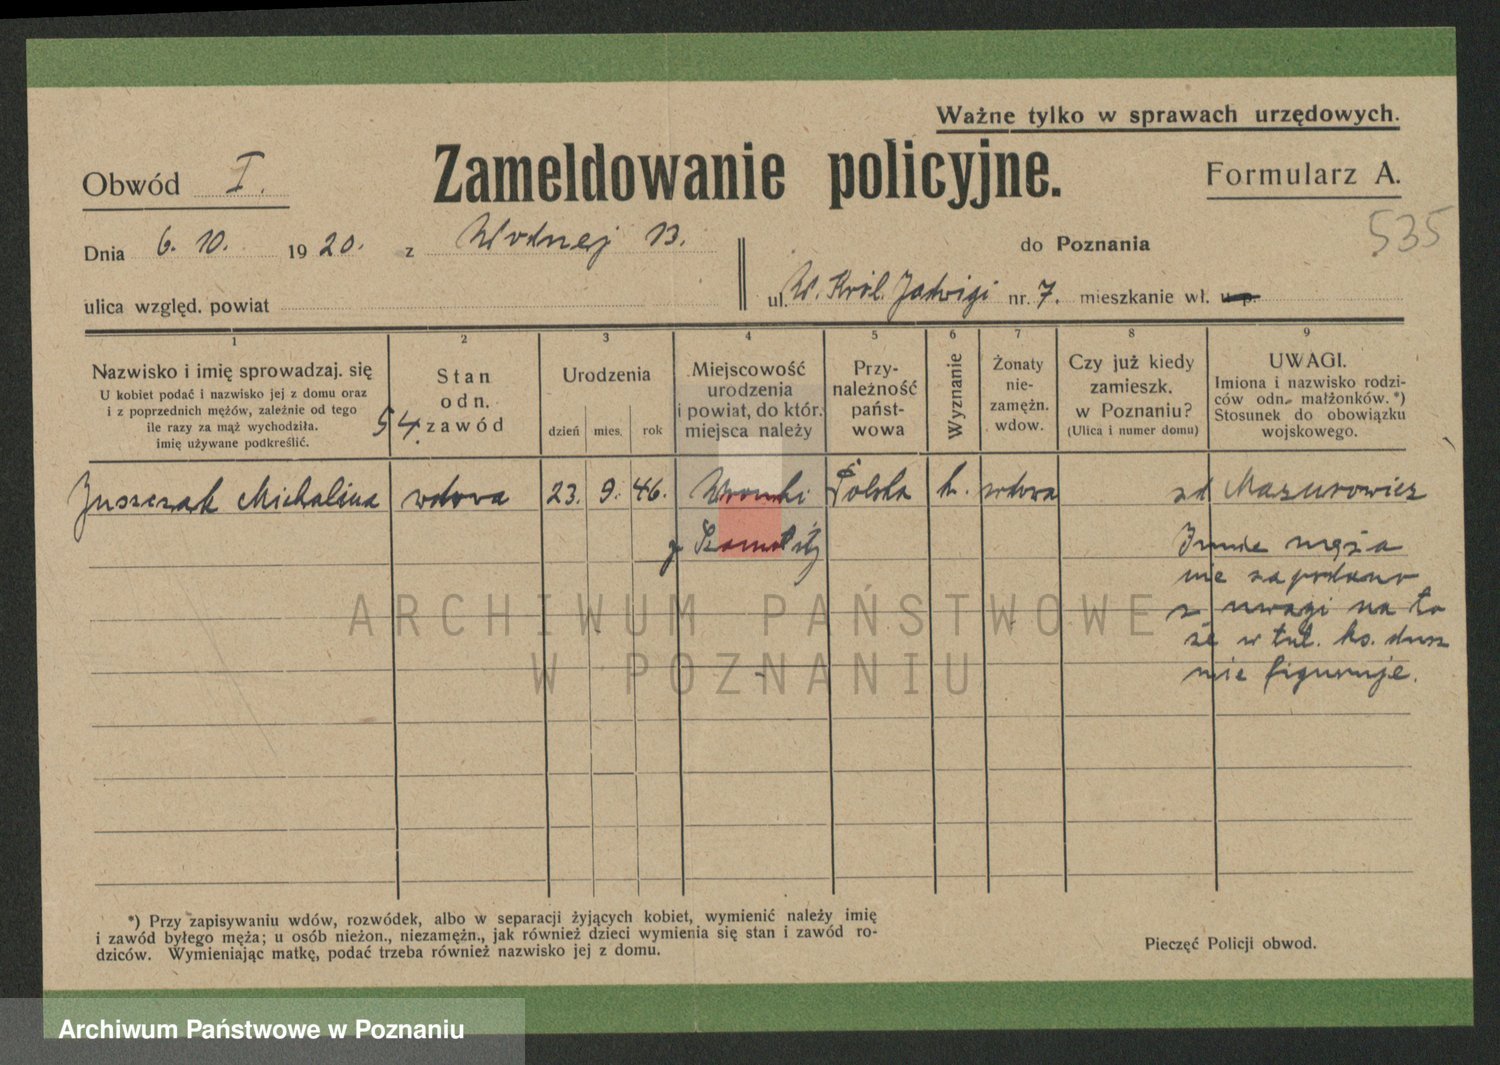 Ważne tylko w sprawach urzędowych.
Obwód I.
Zameldowanie policyjne.
Formularz A.
535
Dnia 6. 10. 1920. z Wodnej 13.
do Poznania
ulica względ. powiat
ul. W. Król. Jadwigi nr. 7. mieszkanie wł. u p.
1 2 3 4 5 6 7 8 9
Nazwisko i imię sprowadzaj. się
U kobiet podać i nazwisko jej z domu oraz
i z poprzednich mężów, zależnie od tego
ile razy za mąż wychodziła.
imię używane podkreślić.
54.
Stan
odn.
zawód
Urodzenia
dzień mies. rok
Miejscowość
urodzenia
i powiat, do któr.
miejsca należy
Przy-
należność
państ-
wowa
Wyznanie
Żonaty
nie-
zamężn.
wdow.
Czy już kiedy
zamieszk.
w Poznaniu?
(Ulica i numer domu)
UWAGI.
Imiona i nazwisko rodzi-
ców odn. małżonków.*)
Stosunek do obowiązku
wojskowego.
Juszczak Michalina wdowa 23. 9. 46. Wronki Polska k. wdowa zd Mazurowicz
Imie męża
nie zapodano
z uwagi na to
że w tut. ks.
nie figuruje.
ARCHIWUM PAŃSTWOWE
W POZNANIU
*) Przy zapisywaniu wdów, rozwódek, albo w separacji żyjących kobiet, wymienić należy imię
i zawód byłego męża; u osób nieżon., niezamężn., jak również dzieci wymienia się stan i zawód ro-
dziców. Wymieniając matkę, podać trzeba również nazwisko jej z domu.
Pieczęć Policji obwod.
Archiwum Państwowe w Poznaniu